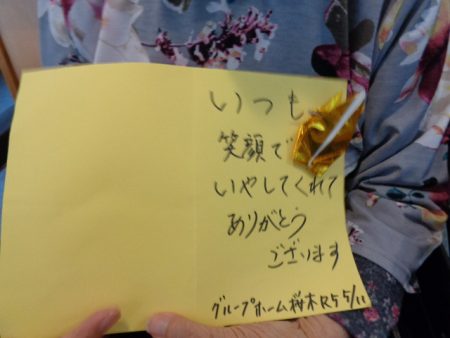 いつも
笑顔で
いやしてくれて
ありがとう
ございます
グループホーム桜木R5 5/11